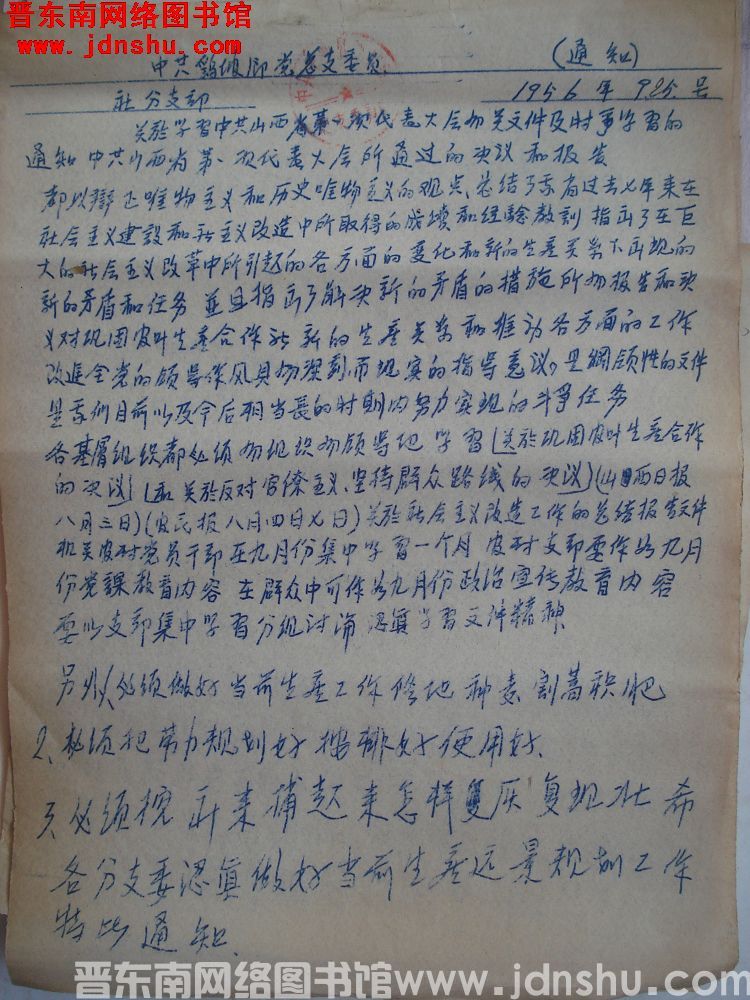 晋东南网络图书馆
www.jdnshu.com
中共 党总支委员 (通知)
社分支部 1956年925号
关於学习中共山西省第一次代表大会的关文件及时事学习的
通知 中共山西省第一次代表大会所通过的决议和报告
都以辩正唯物主义和历史唯物主义的观点、总结了我省过去七年来在
社会主义建設和社主义改造中所取得的成績和经驗教训 指出了在巨
大的社会主义改革中所引起的各方面的变化和新的生產关系下出现的
新的矛盾和任务 並且指出了解决新的矛盾的措施 所有报告和决
义对巩固农叶生產合作社新的生產关系和推动各方面的工作
改進全党的领导作风具有深刻而现实的指导意议。是綱领性的文件
是我们目前以及今后相当長的时期内努力实现的斗爭任务
各基層组织都必须有组织有领导地学習(关於巩固农叶生產合作
的决议)(和关於反对官僚主义、坚持群众路线的决议)(山西日报
八月三日)(农民报八月四日七日)关於社会主义改造工作的总结报告文件
机关农村党员干部在九月份集中学習一个月 农村支部要作为九月
份党課教育内容 在群众中可作为九月份政治宣传教育内容
要以支部集中学習分组讨论 認真学習文件精神
另外必须做好当前生產工作 修地 种麦 割蒿积肥
2、必须把劳力规划好 排好使用好、
3、必须 起来怎样 希
各分支委認真做好当前生產远景规划工作
特此通知、
晋东南网络图书馆www.jdnshu.com